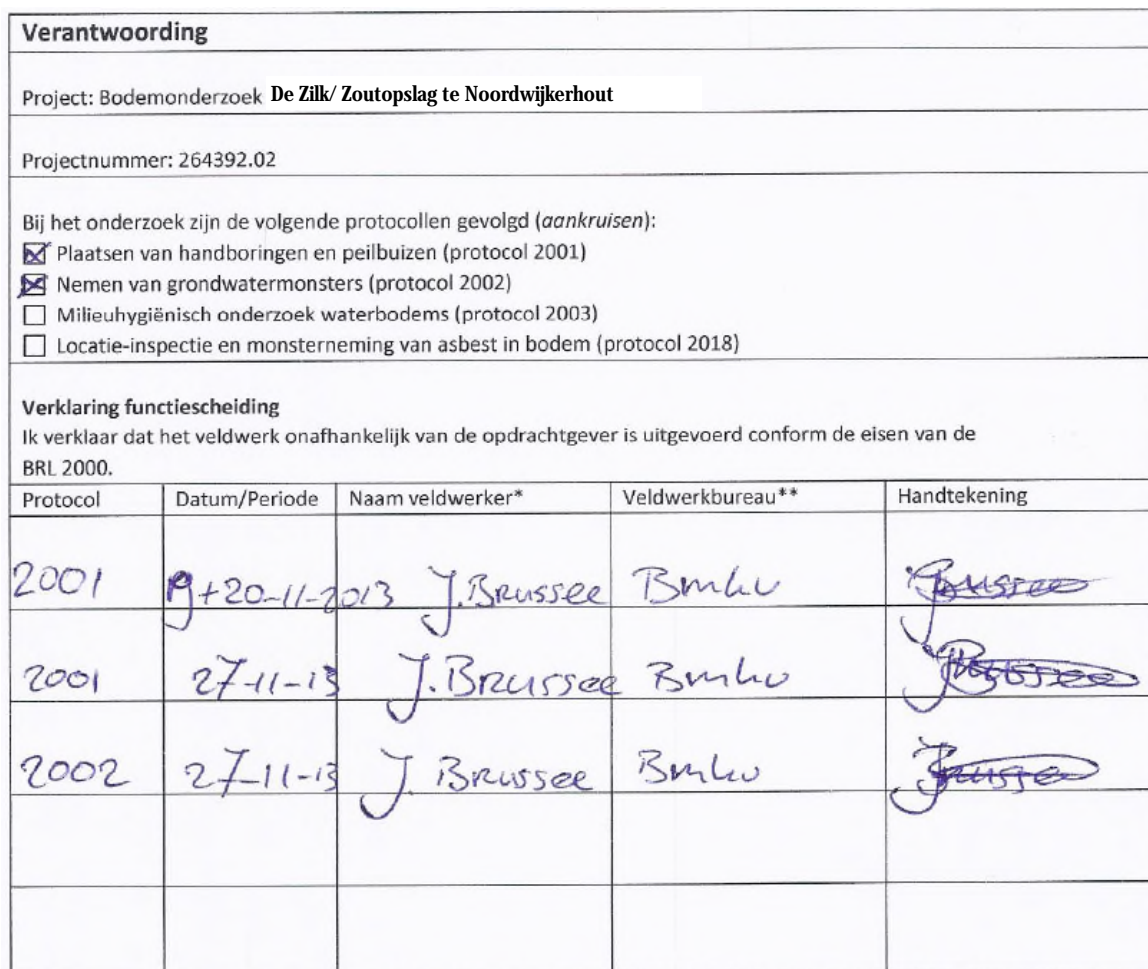 Verantwoording
Project: Bodemonderzoek De Zilk/ Zoutopslag te Noordwijkerhout
Projectnummer: 264392.02
Bij het onderzoek zijn de volgende protocollen gevolgd (aankruisen):
☒ Plaatsen van handboringen en peilbuizen (protocol 2001)
☒ Nemen van grondwatermonsters (protocol 2002)
☐ Milieuhygiënisch onderzoek waterbodems (protocol 2003)
☐ Locatie-inspectie en monsterneming van asbest in bodem (protocol 2018)
Verklaring functiescheiding
Ik verklaar dat het veldwerk onafhankelijk van de opdrachtgever is uitgevoerd conform de eisen van de
BRL 2000.
Protocol Datum/Periode Naam veldwerker* Veldwerkbureau** Handtekening
2001 +20-11-2013 J. Brussee
2001 27-11-13 J. Brussee
2002 27-11-13 J. Brussee